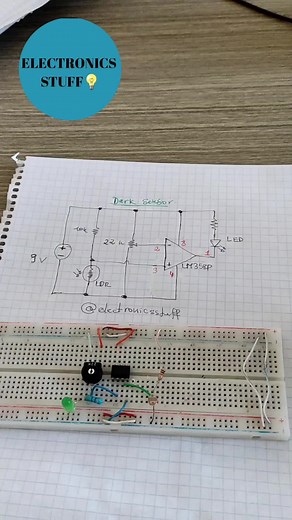 ELECTRONICS
STUFF
Dark Sensor
10k
22k
2
8
1
LED
9V
3
4
LM358P
LDR
@electronicsstuff